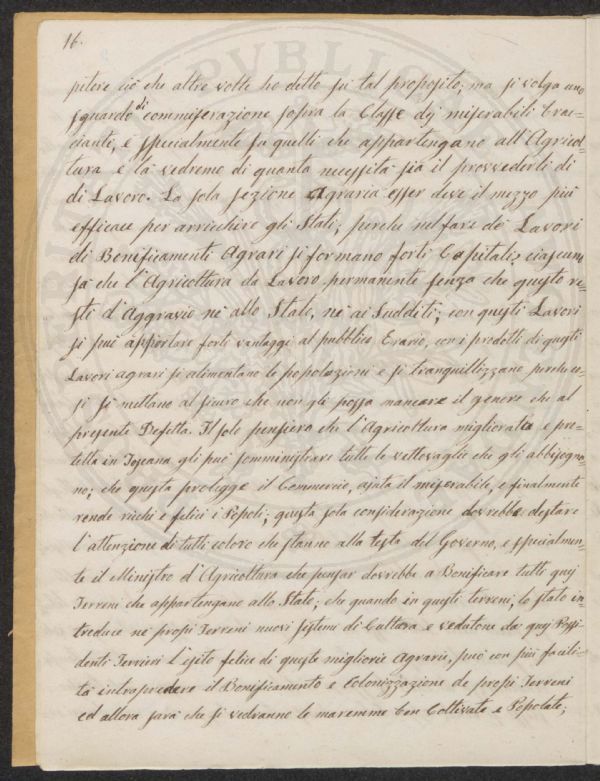 16.
petere ciò che altre volte ho detto sù tal proposito; ma si volga uno
sguardo di commiserazione sopra la Classe dei miserabili brac-
cianti, e specialmente sù quelli che appartengano all'Agricol-
tura e là vedremo di quanta necessità sia il provvederli di
di Lavoro. La sola sezione Agraria esser deve il mezzo più
efficace per arricchire gli Stati; perche nel fare dei Lavori
di Bonificamenti Agrari si formano forti Capitali; ciascuno
sà che l'Agricoltura da Lavoro permanente senza che questo re-
sti d'Aggravio nè allo Stato, nè ai Sudditi; con questi Lavori
si può apportare forti vantaggi al pubblico Erario, con i prodotti di questi
Lavori agrari si alimentano le popolazioni e si tranquillizzano perche es-
si si mettano al sicuro che non gli possa mancare il genere che al
presente Difetta. Il solo pensiero che l'Agricoltura migliorata e pro-
tetta in Toscana gli può somministrare tutte le vettovaglie che gli abbisogna-
no; che questa protegge il Commercio, ajuta il miserabile, e finalmente
rende ricchi e felici i Popoli; questa sola considerazione dovrebbe destare
l'attenzione di tutti coloro che stanno alla testa del Governo, e specialmen-
te il Ministro d'Agricoltura che pensar dovrebbe a Bonificare tutti quei
Terreni che appartengano allo Stato; che quando in questi terreni, lo stato in-
troduce nei propi Terreni nuovi sistemi di Cultura e vedutone da quei Possi-
denti Terrieri l'esito felice di queste migliorie Agrarie, può con più facili-
tà intraprendere il Bonificamento e Colonizzazione de propi Terreni
ed allora sarà che si vedranno le maremme ben Coltivate e Popolate;